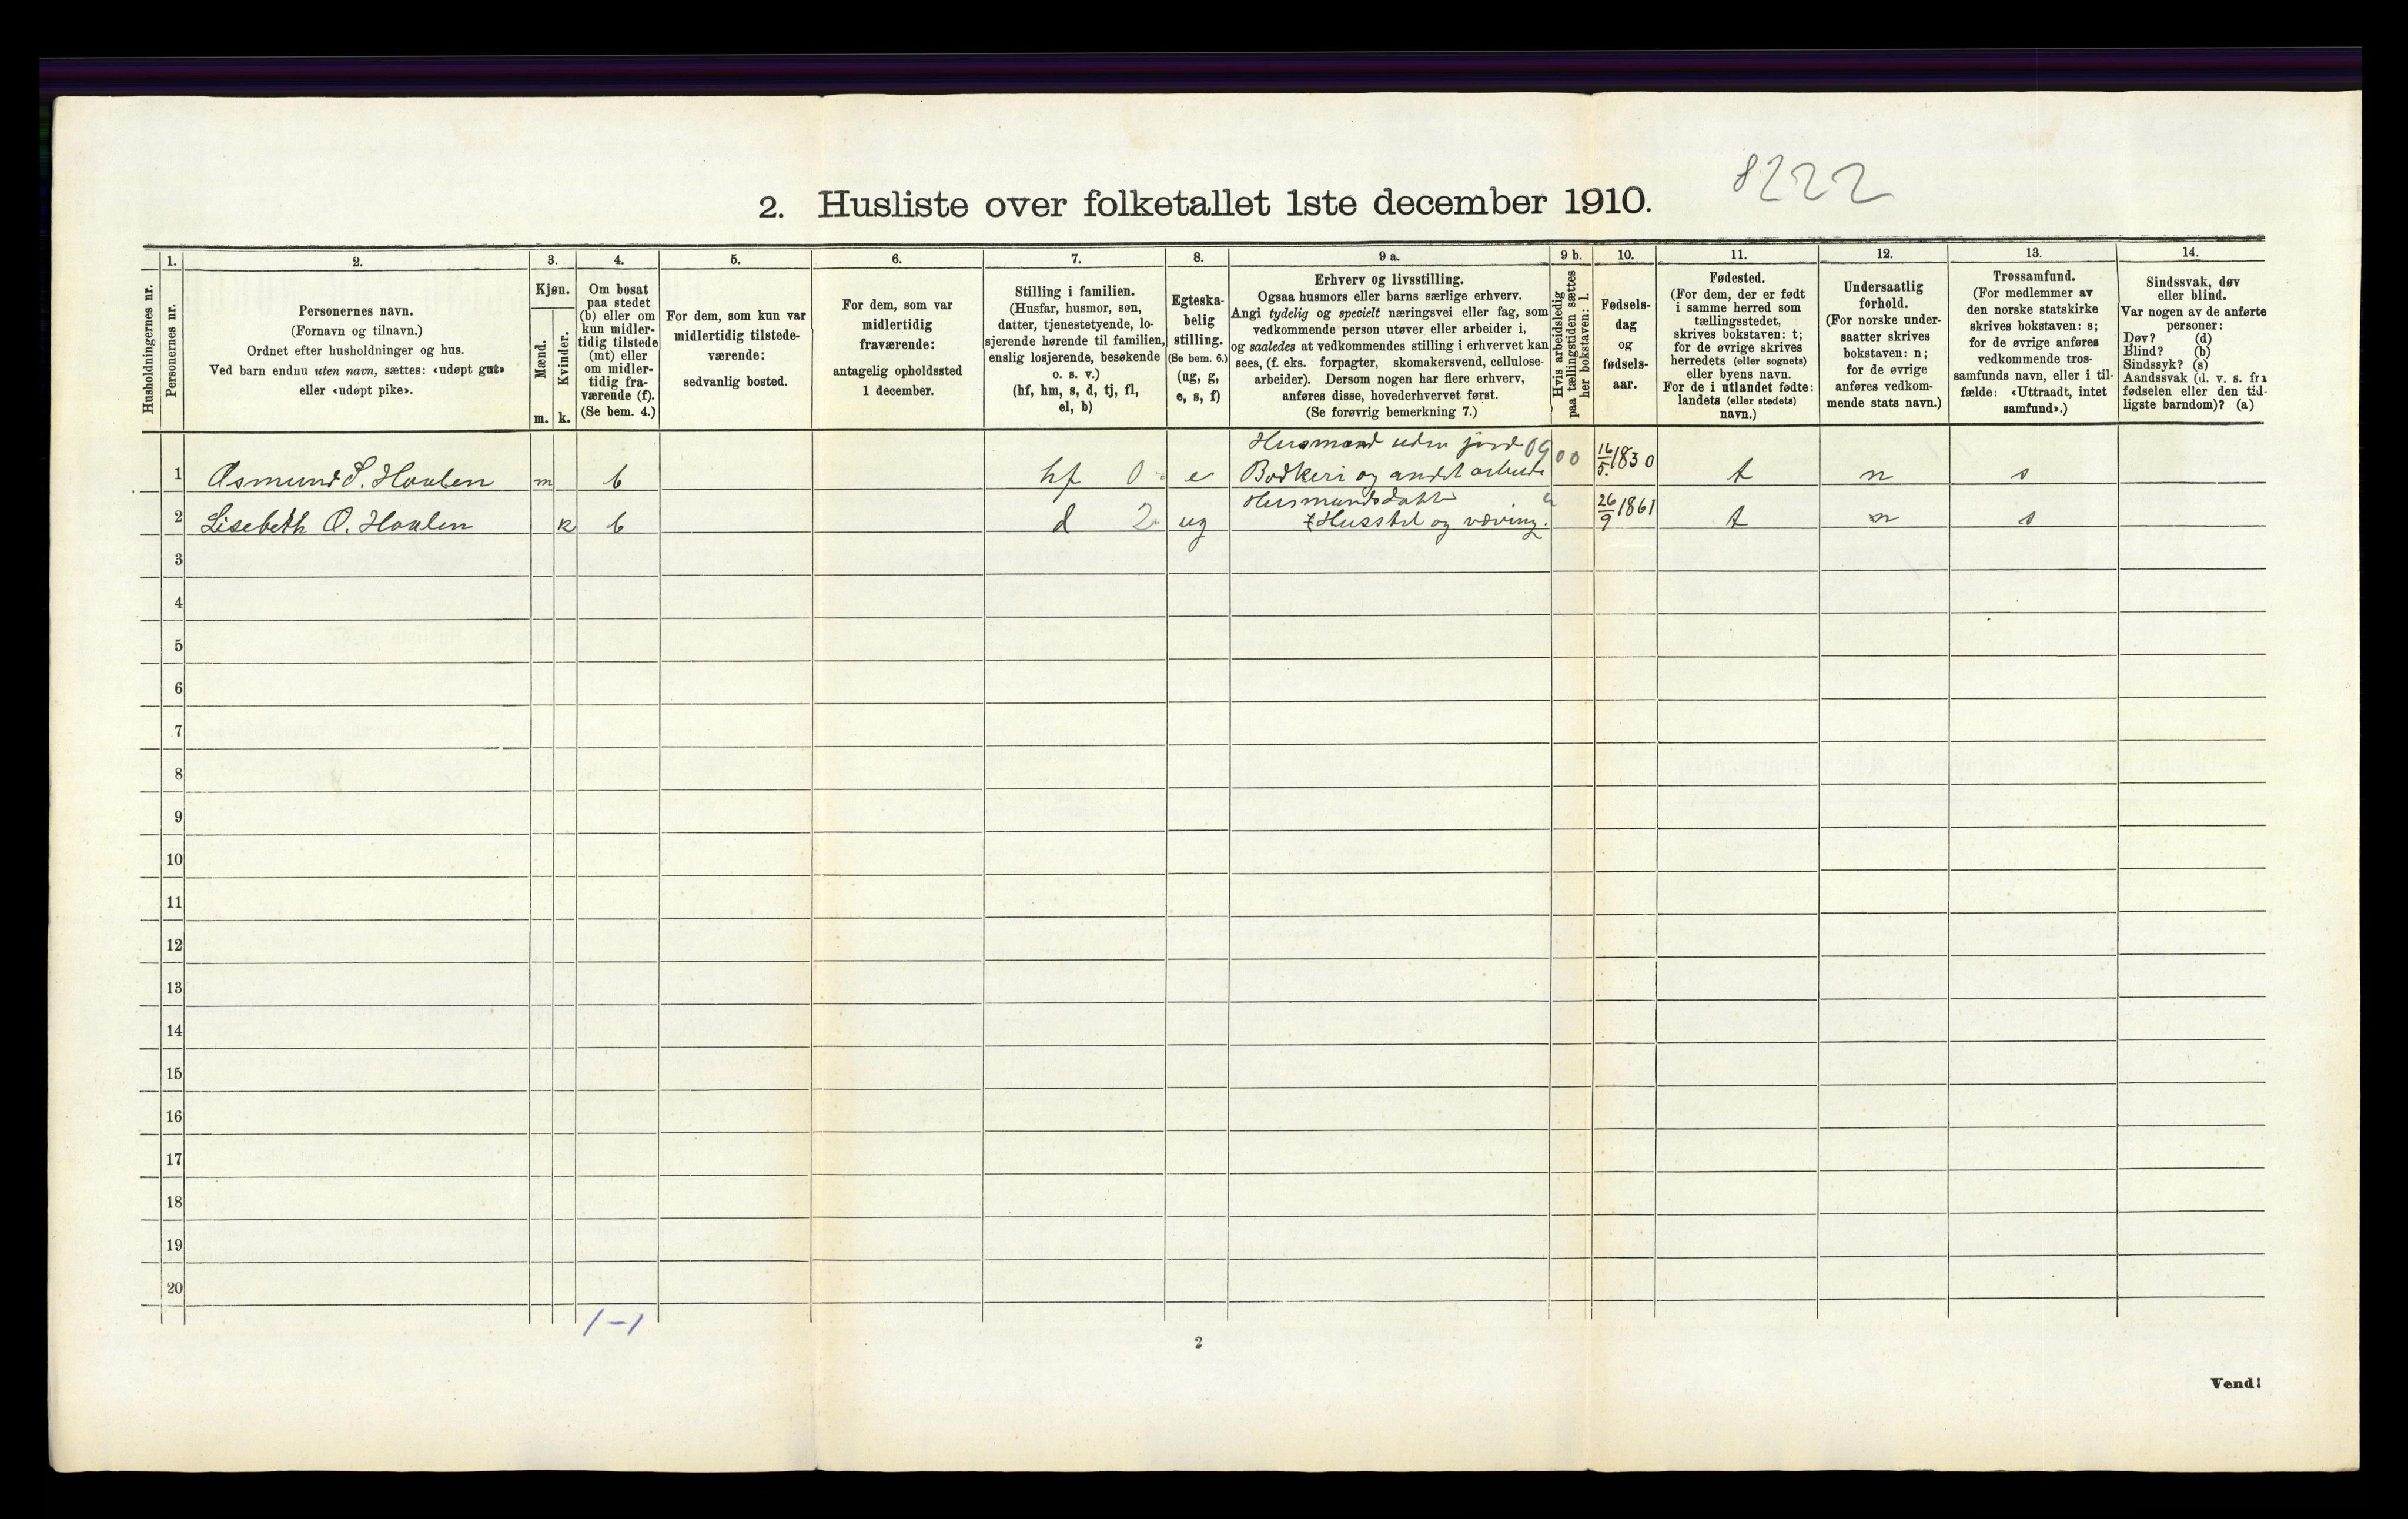 8222
2. Husliste over folketallet 1ste december 1910.
Husholdningernes nr.
1.
Personernes nr.
2.
Personernes navn.
(Fornavn og tilnavn.)
Ordnet efter husholdninger og hus.
Ved barn endnu uten navn, sættes: «udøpt gut»
eller «udøpt pike».
3.
Kjøn.
Mænd.
Kvinder.
m. k.
4.
Om bosat
paa stedet
(b) eller om
kun midler-
tidig tilstede
(mt) eller
om midler-
tidig fra-
værende (f).
(Se bem. 4.)
5.
For dem, som kun var
midlertidig tilstede-
værende:
sedvanlig bosted.
6.
For dem, som var
midlertidig
fraværende:
antagelig opholdssted
1 december.
7.
Stilling i familien.
(Husfar, husmor, søn,
datter, tjenestetyende, lo-
sjerende hørende til familien,
enslig losjerende, besøkende
o. s. v.)
(hf, hm, s, d, tj, fl,
el, b)
8.
Egteska-
belig
stilling.
(Se bem. 6.)
(ug, g,
e, s, f)
9 a.
Erhverv og livsstilling.
Ogsaa husmors eller barns særlige erhverv.
Angi tydelig og specielt næringsvei eller fag, som
vedkommende person utøver eller arbeider i,
og saaledes at vedkommendes stilling i erhvervet kan
sees, (f. eks. forpagter, skomakersvend, cellulose-
arbeider). Dersom nogen har flere erhverv,
anføres disse, hovederhvervet først.
(Se forøvrig bemerkning 7.)
9 b.
Hvis arbeidsledig
paa tællingstiden sættes
her bokstaven: l.
10.
Fødsels-
dag
og
fødsels-
aar.
11.
Fødested.
(For dem, der er født
i samme herred som
tællingsstedet,
skrives bokstaven: t;
for de øvrige skrives
herredets (eller sognets)
eller byens navn.
For de i utlandet fødte:
landets (eller stedets)
navn.)
12.
Undersaatlig
forhold.
(For norske under-
saatter skrives
bokstaven: n;
for de øvrige
anføres vedkom-
mende stats navn.)
13.
Trossamfund.
(For medlemmer av
den norske statskirke
skrives bokstaven: s;
for de øvrige anføres
vedkommende tros-
samfunds navn, eller i til-
fælde: «Uttraadt, intet
samfund».)
14.
Sindssvak, døv
eller blind.
Var nogen av de anførte
personer:
Døv? (d)
Blind? (b)
Sindssyk? (s)
Aandssvak (d. v. s. fra
fødselen eller den tid-
ligste barndom)? (a)
Husmand uden jord 0900
1 Osmund S. Hovlen m b hf 0 e Bødkeri og andet arbeide 16/5. 1830 t n s
Husmandsdatter
2 Lisebeth O. Hovlen k b d 2 ug Husstel og væving. 26/9 1861 t n s
3
4
5
6
7
8
9
10
11
12
13
14
15
16
17
18
19
20
1-1
2
Vend!